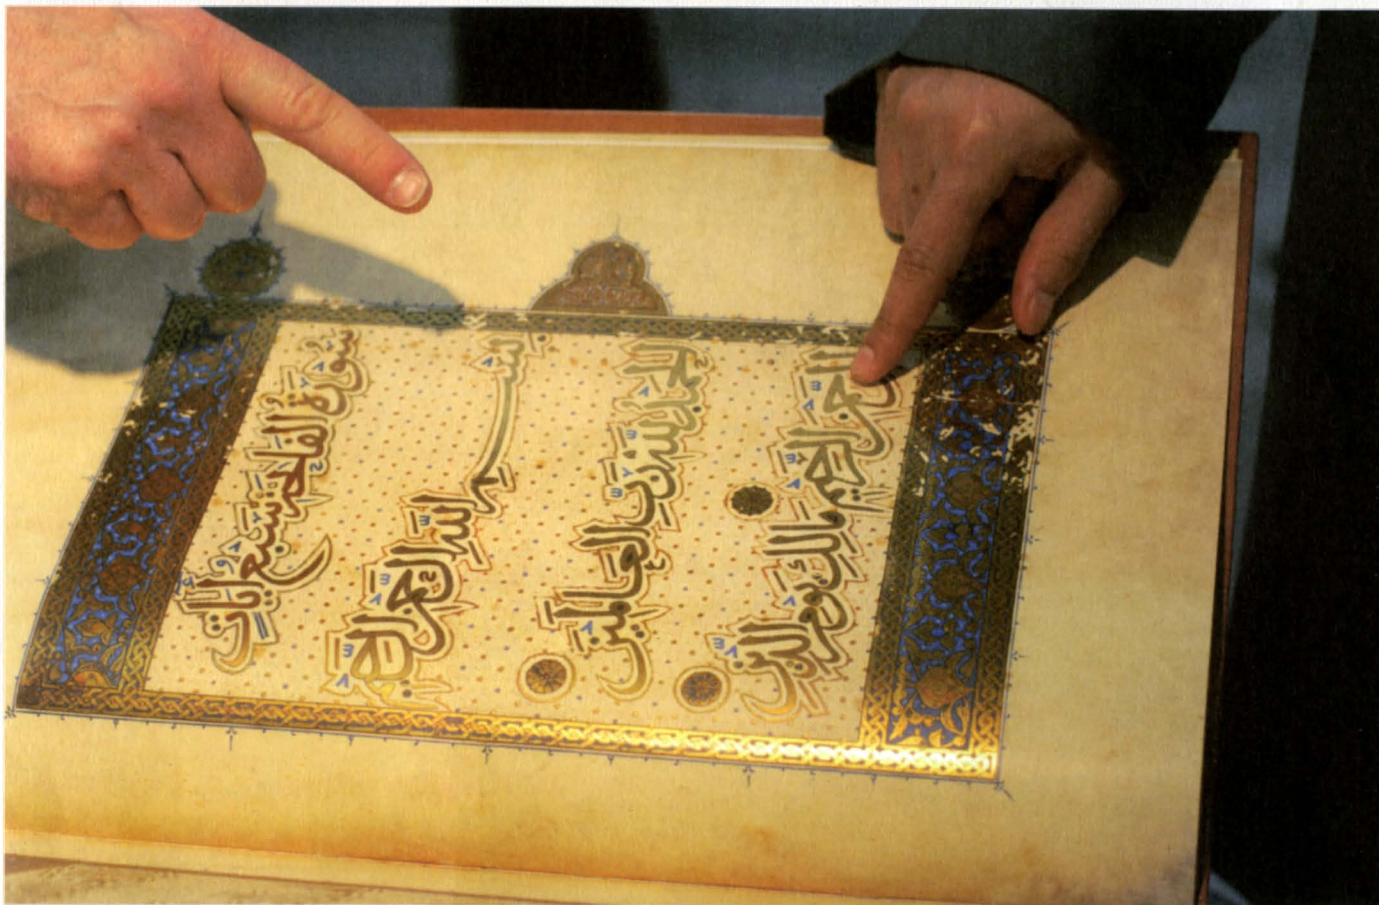 سُورَةُ الفَاتِحَةِ سَبْعُ آيَاتٍ
بِسْمِ اللَّهِ الرَّحْمَنِ الرَّحِيمِ
الحَمْدُ لِلَّهِ رَبِّ العَالَمِينَ
الرَّحْمَنِ الرَّحِيمِ مَالِكِ يَوْمِ الدِّينِ